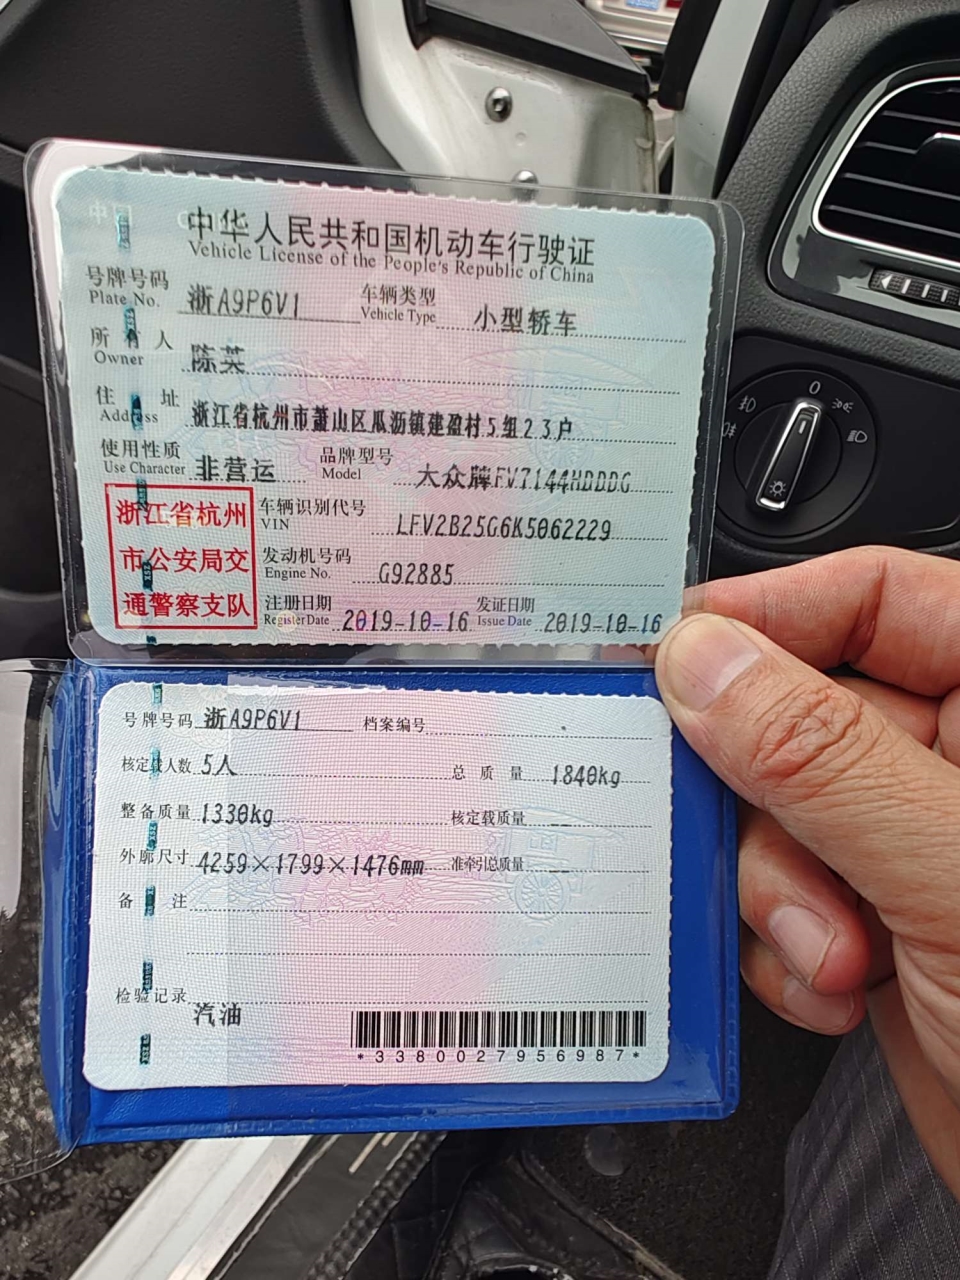 中华人民共和国机动车行驶证
Vehicle License of the People's Republic of China
号牌号码 浙A9P6V1 车辆类型 小型轿车
Plate No. Vehicle Type
所有人 陈英
Owner
住址 浙江省杭州市萧山区瓜沥镇建盈村5组23户
Address
使用性质 非营运 品牌型号 大众牌FV7144HBDDG
Use Character Model
浙江省杭州
市公安局交
通警察支队
车辆识别代号 LFV2B25G6K5062229
VIN
发动机号码 G92885
Engine No.
注册日期 2019-10-16 发证日期 2019-10-16
Register Date Issue Date
号牌号码 浙A9P6V1 档案编号
核定载人数 5人 总质量 1840kg
整备质量 1330kg 核定载质量 --
外廓尺寸 4259×1799×1476mm 准牵引总质量 --
备注
检验记录
汽油
*3380027956987*
0